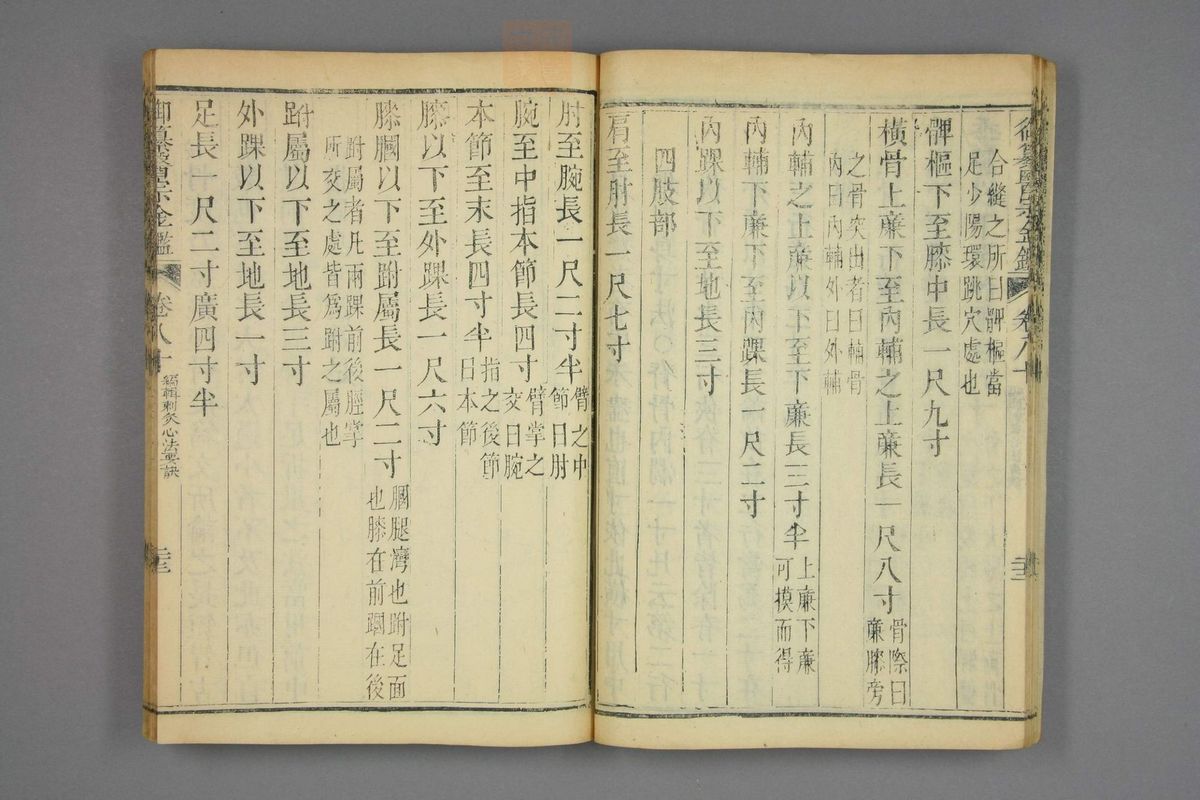 御纂醫宗金鑑 卷八十
合縫之所曰髀樞當
足少陽環跳穴處也
髀樞下至膝中長一尺九寸
橫骨上廉下至內輔之上廉長一尺八寸
骨際曰
廉膝旁
之骨突出者曰輔骨
內曰內輔外曰外輔
內輔之上廉以下至下廉長三寸半
上廉下廉
可摸而得
內輔下廉下至內踝長一尺二寸
內踝以下至地長三寸
四肢部
肩至肘長一尺七寸
肘至腕長一尺二寸半
臂之中
節曰肘
腕至中指本節長四寸
臂掌之
交曰腕
本節至末長四寸半
指之後節
曰本節
膝以下至外踝長一尺六寸
膝膕以下至跗屬長一尺二寸
膕腿灣也跗足面
也膝在前膕在後
跗屬者凡兩踝前後脛掌
所交之處皆為跗之屬也
跗屬以下至地長三寸
外踝以下至地長一寸
足長一尺二寸廣四寸半
御纂醫宗金鑑 卷八十 編輯刺灸心法要訣